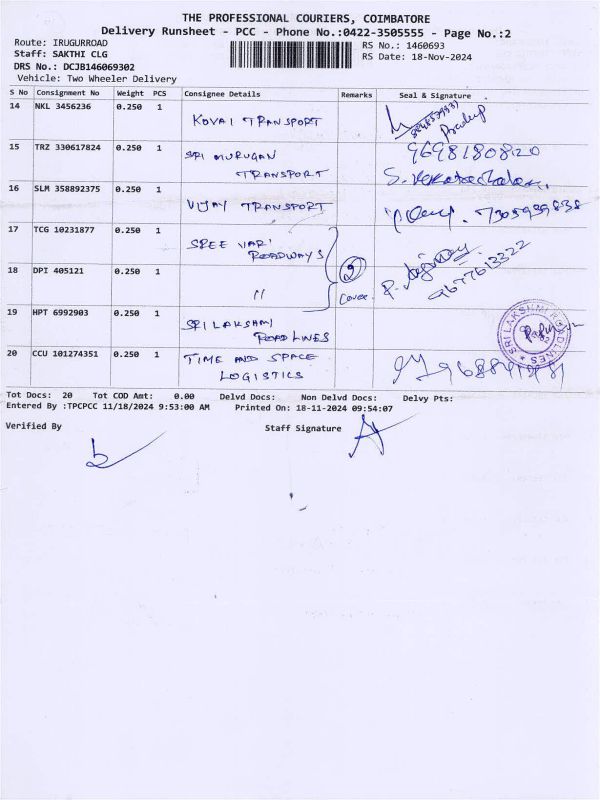 THE PROFESSIONAL COURIERS, COIMBATORE
Delivery Runsheet - PCC - Phone No.:0422-3505555 - Page No.:2
Route: IRUGURROAD RS No.: 1460693
Staff: SAKTHI CLG RS Date: 18-Nov-2024
DRS No.: DCJB146069302
Vehicle: Two Wheeler Delivery
S No Consignment No Weight PCS Consignee Details Remarks Seal & Signature
14 NKL 3456236 0.250 1 KOVAI TRANSPORT Pradeep
15 TRZ 330617824 0.250 1 SRI MURUGAN 9698180820
TRANSPORT S. Venkatachalam.
16 SLM 358892375 0.250 1 VIJAY TRANSPORT 7305939838
17 TCG 10231877 0.250 1 SREE VARI
ROADWAYS
18 DPI 405121 0.250 1 " 2 Cover 9677613322
19 HPT 6992903 0.250 1 SRI LAKSHMI
ROAD LINES SRI LAKSHMI ROADLINES
20 CCU 101274351 0.250 1 TIME AND SPACE
LOGISTICS
Tot Docs: 20 Tot COD Amt: 0.00 Delvd Docs: Non Delvd Docs: Delvy Pts:
Entered By :TPCPCC 11/18/2024 9:53:00 AM Printed On: 18-11-2024 09:54:07
Verified By Staff Signature